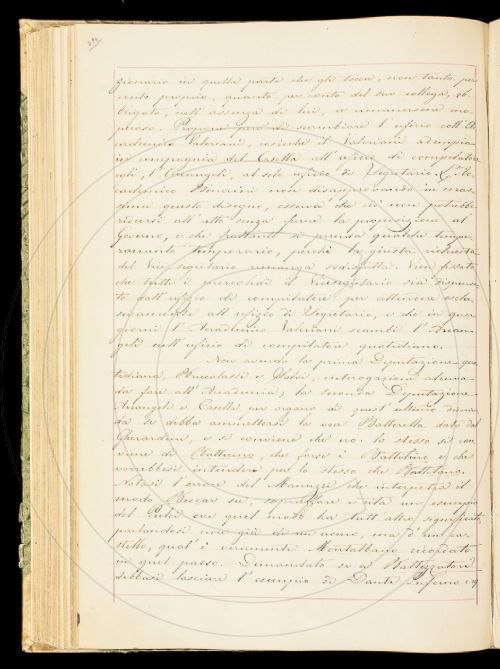 zionario in quella parte che gli tocca, non tanto per
conto proprio, quanto per conto del suo collega, ob-
bligato, nell'assenza di lui, a rimanersene ino-
peroso. Propone però di scambiare l'ufizio coll'Ac-
cademico Valeriani, cosicchè il Valeriani adempia
in compagnia del Casella all'ufizio di compilatore
egli, l'Arcangeli, al solo ufizio di Segretario. L'Ac-
cademico non disapprovando in mas-
sima questo disegno, osserva che ciò non potrebbe
ridursi all'atto senza farne la proposizione al
Governo, e che frattanto si prenda qualche tempe-
ramento temporario, perchè la giusta richiesta
del Vicesegretario rimanga sodisfatta. Vien fissato
che tutti i mercoledì il Vicesegretario sia dispensa-
to dall'ufizio di compilatore per attendere esclu-
sivamente all'ufizio di Segretario, e che in quei
giorni l'Accademico Valeriani scambi l'Arcan-
geli nell'ufizio di compilatore quotidiano.
Non avendo la prima Deputazione quo-
tidiana, e interrogazione alcuna
da fare all'Accademia, la seconda Deputazione
Arcangeli e Casella per organo di quest'ultimo diman-
da se debba ammettersi la voce Batterella data dal
Gherardini, e si conviene che no: lo stesso si con-
viene di che forse è Battitino, e che
vorrebbesi intendere per lo stesso che Battitano.
Notasi l'errore del Manuzzi che interpreta il
modo sopraffare e cita un esempio
del Pulci ove quel modo ha tutt'altro significato,
parlandosi non già di un uomo, ma d'un ca-
stello, qual'è veramente Montalbano ricordato
in quel passo. Dimandato se a Battezzatori
debbasi lasciare l'esempio di Dante Inferno 19